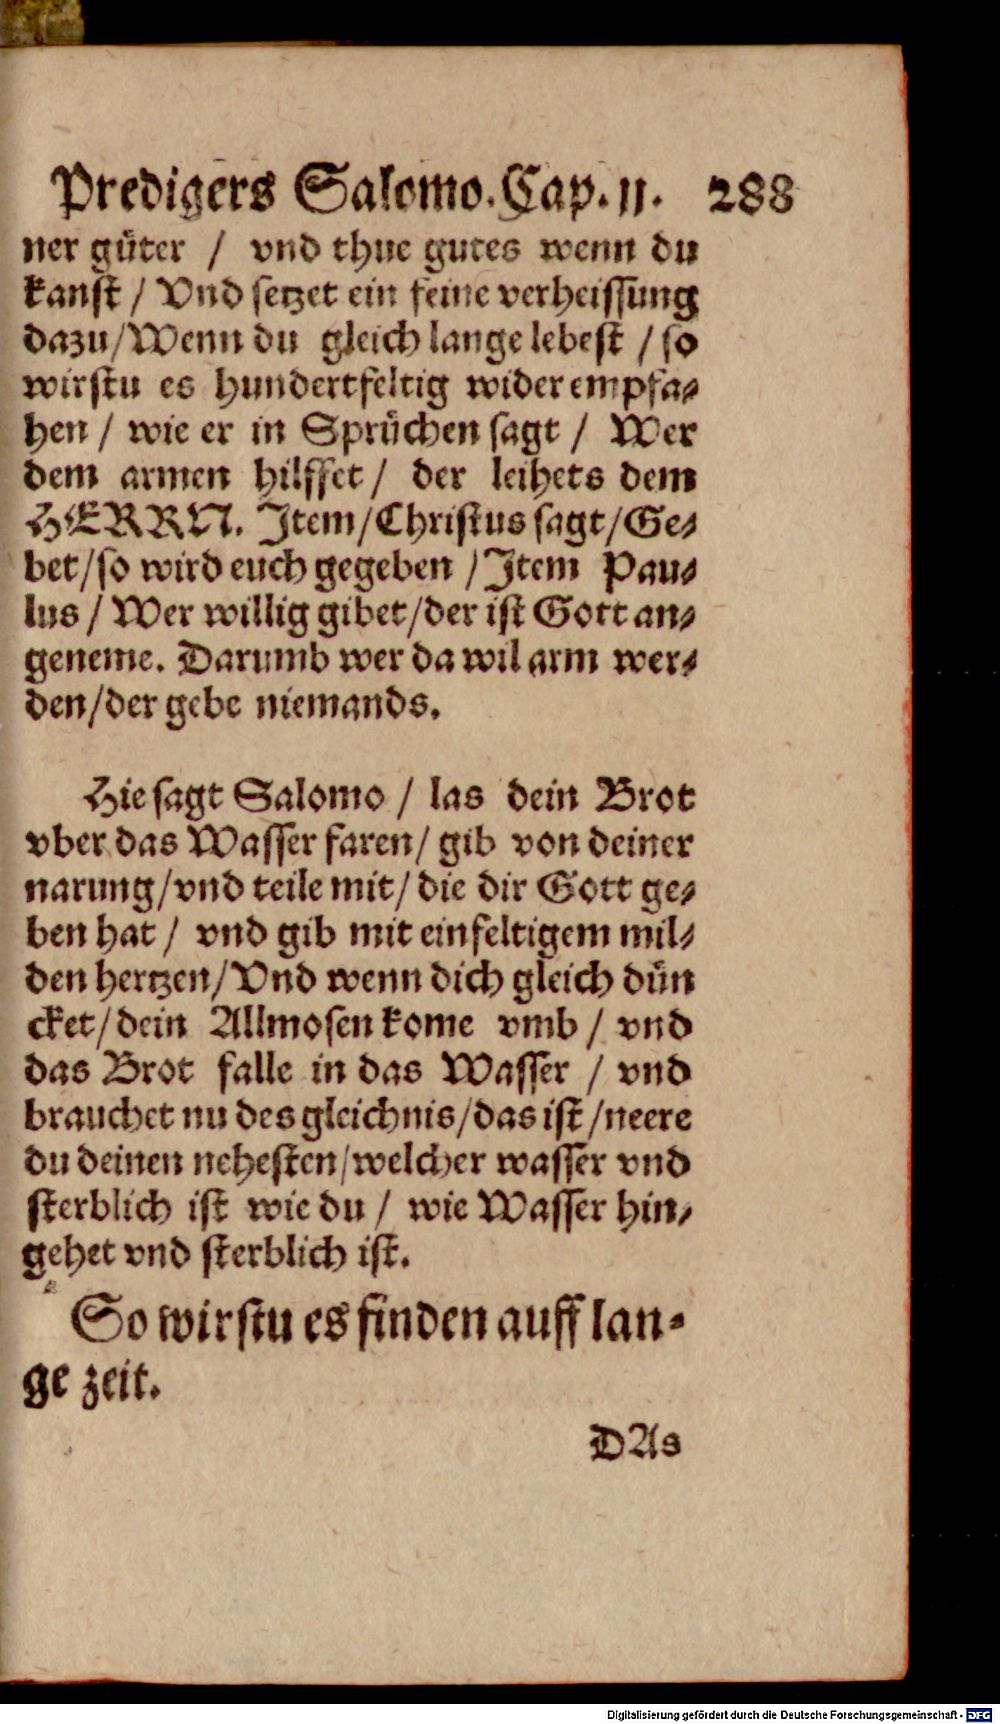 Predigers Salomo. Cap. 11. 288
ner guͤter / vnd thue gutes wenn du
kanst / Vnd setzet ein feine verheissung
dazu/Wenn du gleich lange lebest / so
wirstu es hundertfeltig wider empfa-
hen / wie er in Spruͤchen sagt / Wer
dem armen hilffet / der leihets dem
HERRN. Item/Christus sagt/Ge-
bet/so wird euch gegeben / Item Pau-
lus / Wer willig gibet/der ist Gott an-
geneme. Darumb wer da wil arm wer-
den/der gebe niemands.
Hie sagt Salomo / las dein Brot
vber das Wasser faren/ gib von deiner
narung/vnd teile mit/ die dir Gott ge-
ben hat / vnd gib mit einfeltigem mil-
den hertzen/Vnd wenn dich gleich duͤn
cket/dein Allmosen kome vmb / vnd
das Brot falle in das Wasser / vnd
brauchet nu des gleichnis/das ist/neere
du deinen nehesten/welcher wasser vnd
sterblich ist wie du / wie Wasser hin-
gehet vnd sterblich ist.
So wirstu es finden auff lan-
ge zeit.
DAs
Digitalisierung gefördert durch die Deutsche Forschungsgemeinschaft - DFG